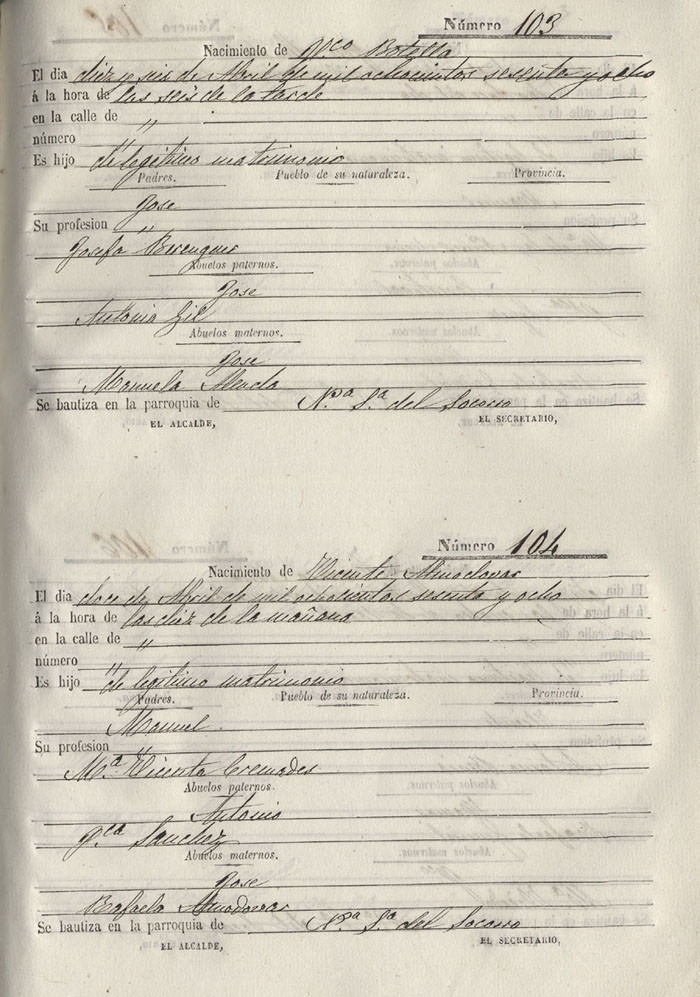 Número 103
Nacimiento de Fco Botella
El dia diez y seis de Abril de mil ochocientos sesenta y ocho
á la hora de las seis de la tarde
en la calle de "
número "
Es hijo de legitimo matrimonio
Padres. Pueblo de su naturaleza. Provincia.
Jose
Su profesion "
Josefa Berenguer
Abuelos paternos.
Jose
Antonia Gil
Abuelos maternos.
Jose
Manuela
Se bautiza en la parroquia de Nª Sª del Socorro
EL ALCALDE, EL SECRETARIO,
Número 104
Nacimiento de Vicente Almodovar
El dia doce de Abril de mil ochocientos sesenta y ocho
á la hora de las diez de la mañana
en la calle de "
número "
Es hijo de legitimo matrimonio
Padres. Pueblo de su naturaleza. Provincia.
Manuel
Su profesion "
Mª Vicenta Cremades
Abuelos paternos.
Antonio
Fca Sanchez
Abuelos maternos.
Jose
Rafaela Almodovar
Se bautiza en la parroquia de Nª Sª del Socorro
EL ALCALDE, EL SECRETARIO,